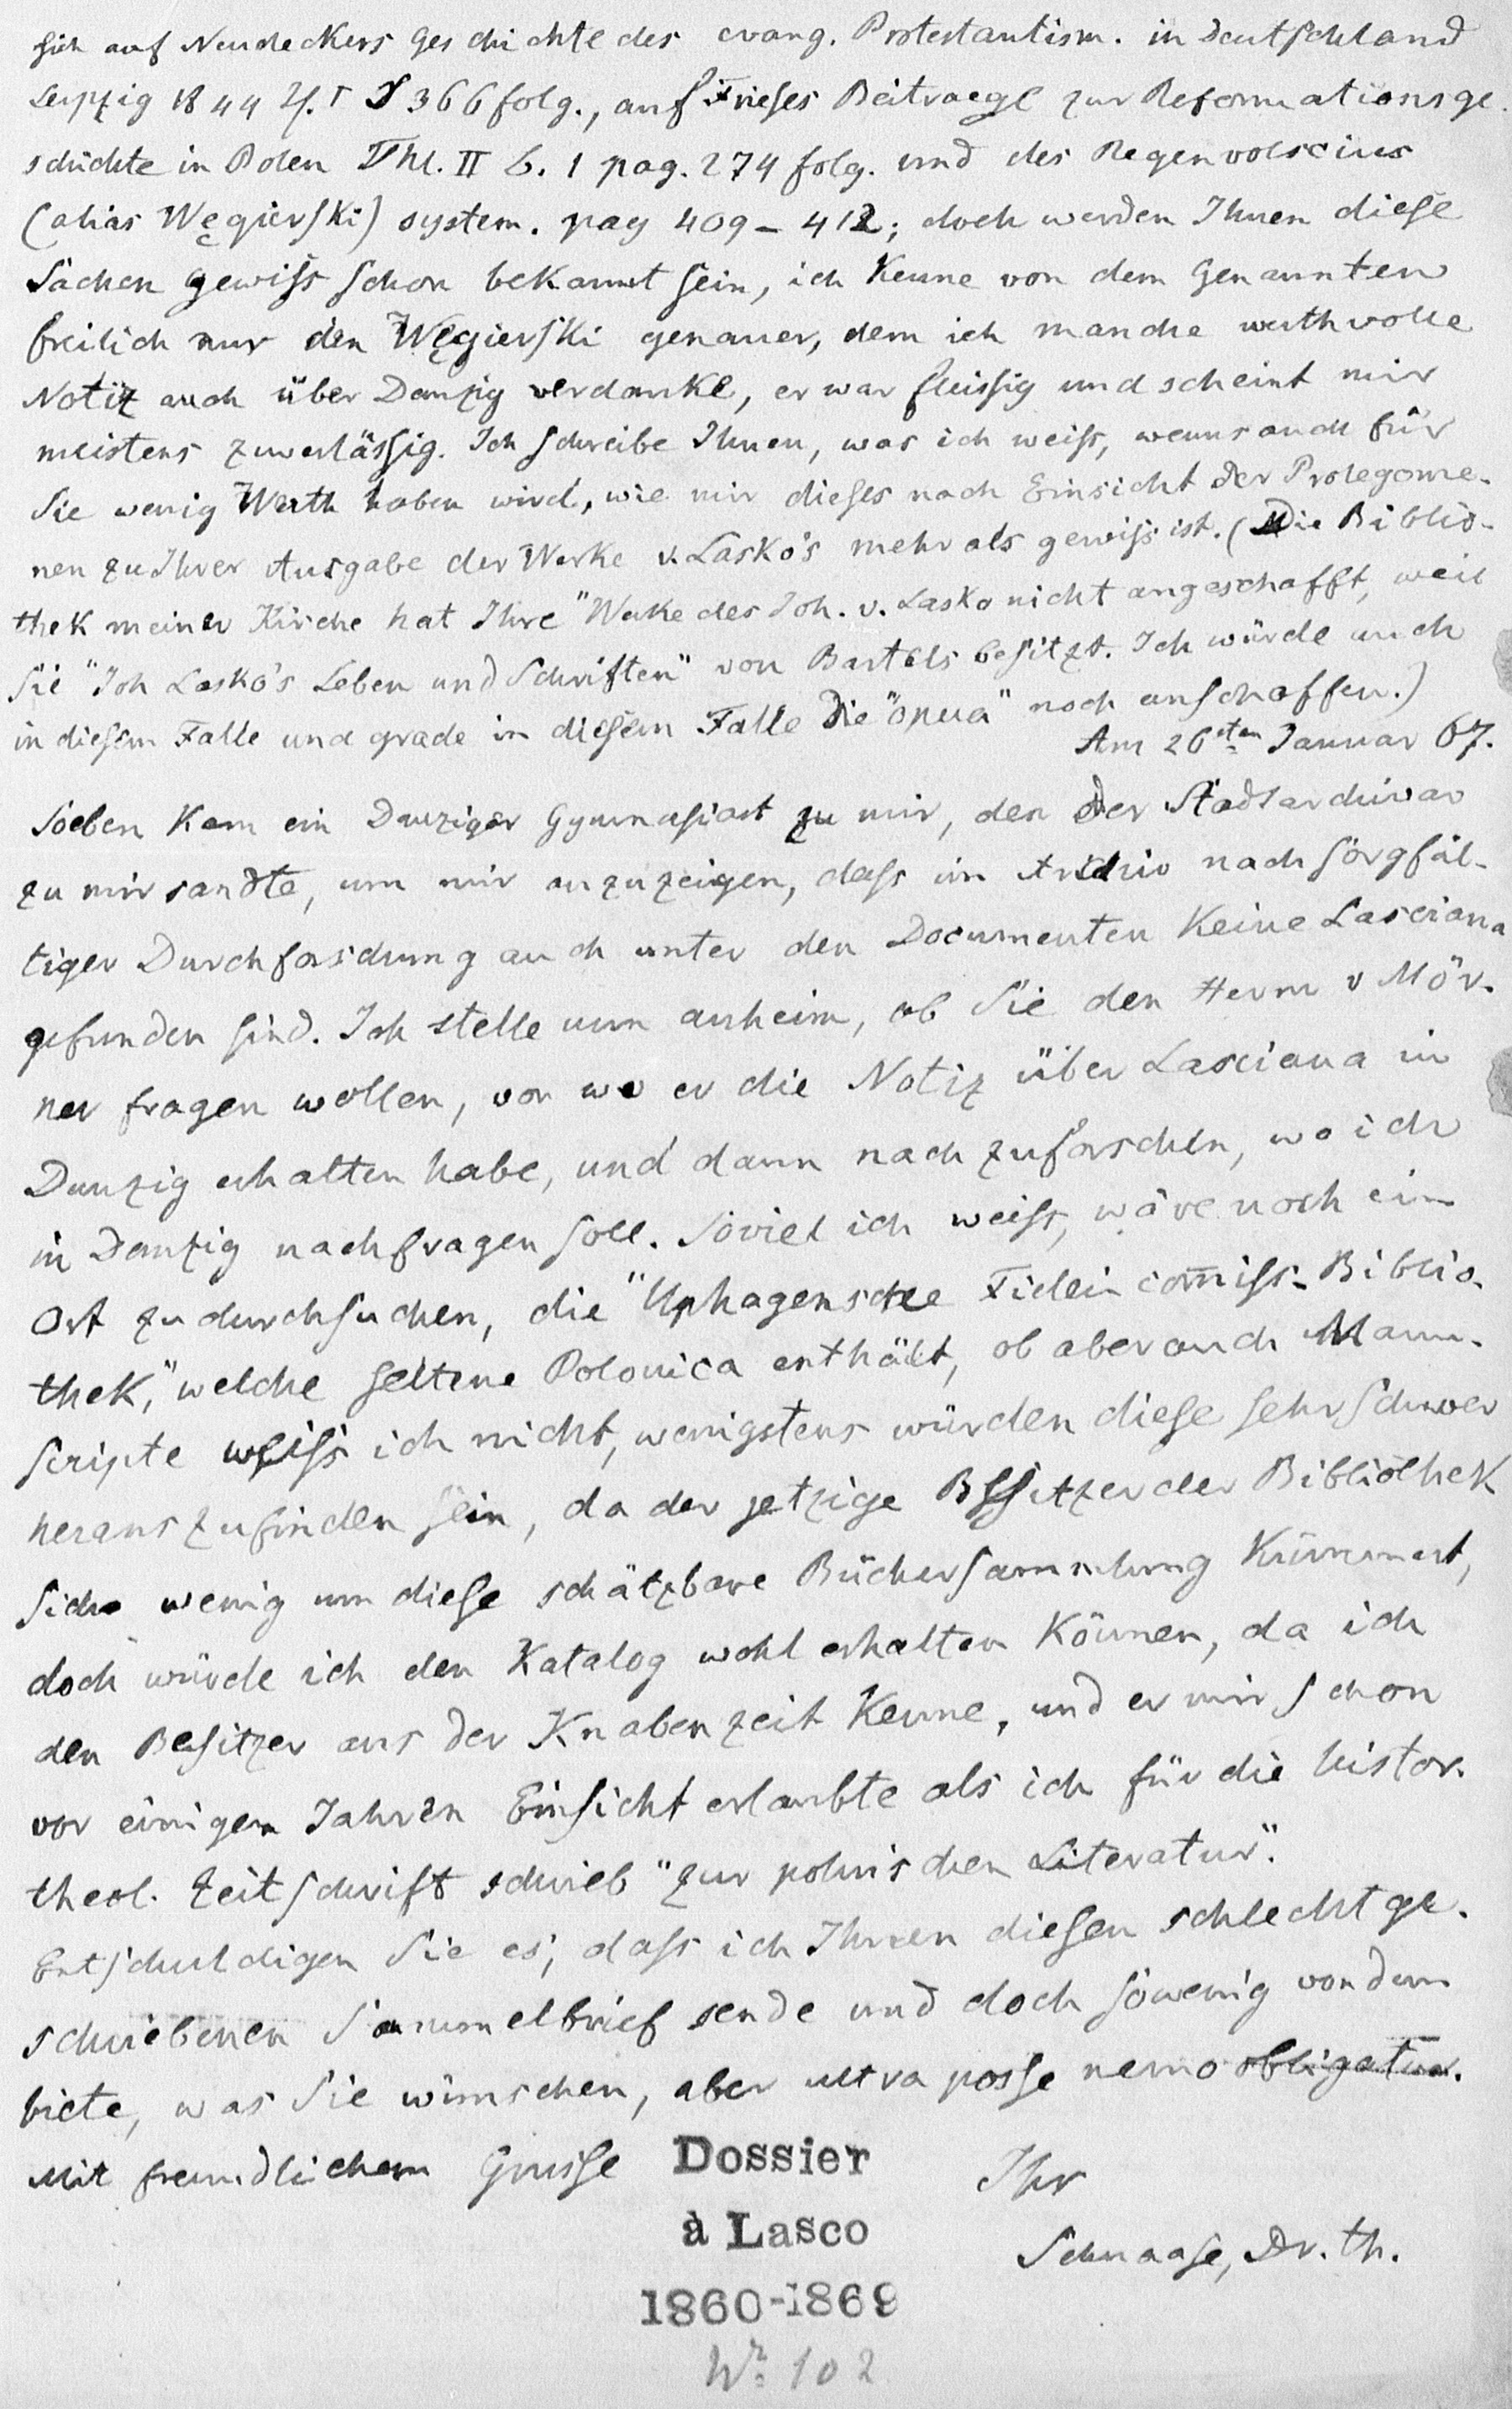 sich auf Neudeckers Geschichte des evang. Protestantism. in Deutschland
Leipzig 1844 S 366 folg., auf Frieses Beitraege zur Reformationsge-
schichte in Polen Thl. II b. 1 pag. 274 folg. und des Regenvolscius
(alias Węgierski) system. pag 409 – 412; doch werden Ihnen diese
Sachen gewiss schon bekannt sein, ich kenne von dem Genannten
freilich nur den Węgierski genauer, dem ich manche werthvolle
Notiz auch über Danzig verdanke, er war fleissig und scheint mir
meistens zuverlässig. Ich schreibe Ihnen, was ich weiss, wenns auch für
Sie wenig Werth haben wird, wie mir dieses nach Einsicht der Prolegome-
nen zu Ihrer Ausgabe der Werke v. Lasko's mehr als gewiss ist. (Die Biblio-
thek meiner Kirche hat Ihre "Werke des Joh. v. Lasko nicht angeschafft, weil
Sie "Joh Lasko's Leben und Schriften" von Bartels besitzt. Ich würde auch
in diesem Falle und grade in diesem Falle die "opera" noch anschaffen.)
Am 26sten Januar 67.
Soeben kam ein Danziger Gymnasiast zu mir, den der Stadtarchivar
zu mir sandte, um mir anzuzeigen, dass im Archiv nach sorgfäl-
tiger Durchforschung auch unter den Documenten keine Lasciana
gefunden sind. Ich stelle nun anheim, ob Sie den Herrn v Mör-
ner fragen wollen, von wo er die Notiz über Lasciana in
Danzig erhalten habe, und dann nachzuforschen, wo ich
in Danzig nachfragen soll. Soviel ich weiss, wäre noch ein
Ort zu durchsuchen, die "Uphagensche Fideicom̅iss-Biblio-
thek," welche seltene Polonica enthält, ob aber auch Manu-
scripte weiss ich nicht, wenigstens würden diese sehr schwer
herauszufinden sein, da der jetzige Besitzer der Bibliothek
sich wenig um diese schätzbare Büchersammlung kümmert,
doch würde ich den Katalog wohl erhalten können, da ich
den Besitzer aus der Knabenzeit kenne, und er mir schon
vor einigen Jahren Einsicht erlaubte als ich für die histor.
theol. Zeitschrift schrieb "zur polnischen Literatur".
Entschuldigen Sie es, dass ich Ihnen diesen schlecht ge-
schriebenen Sammelbrief sende und doch so wenig von dem
biete, was Sie wünschen, aber ultra posse nemo obligatur.
Mit freundlichem Grusse
Ihr
Schnaase, Dr. th.
Dossier
à Lasco
1860-1869
Nr. 102